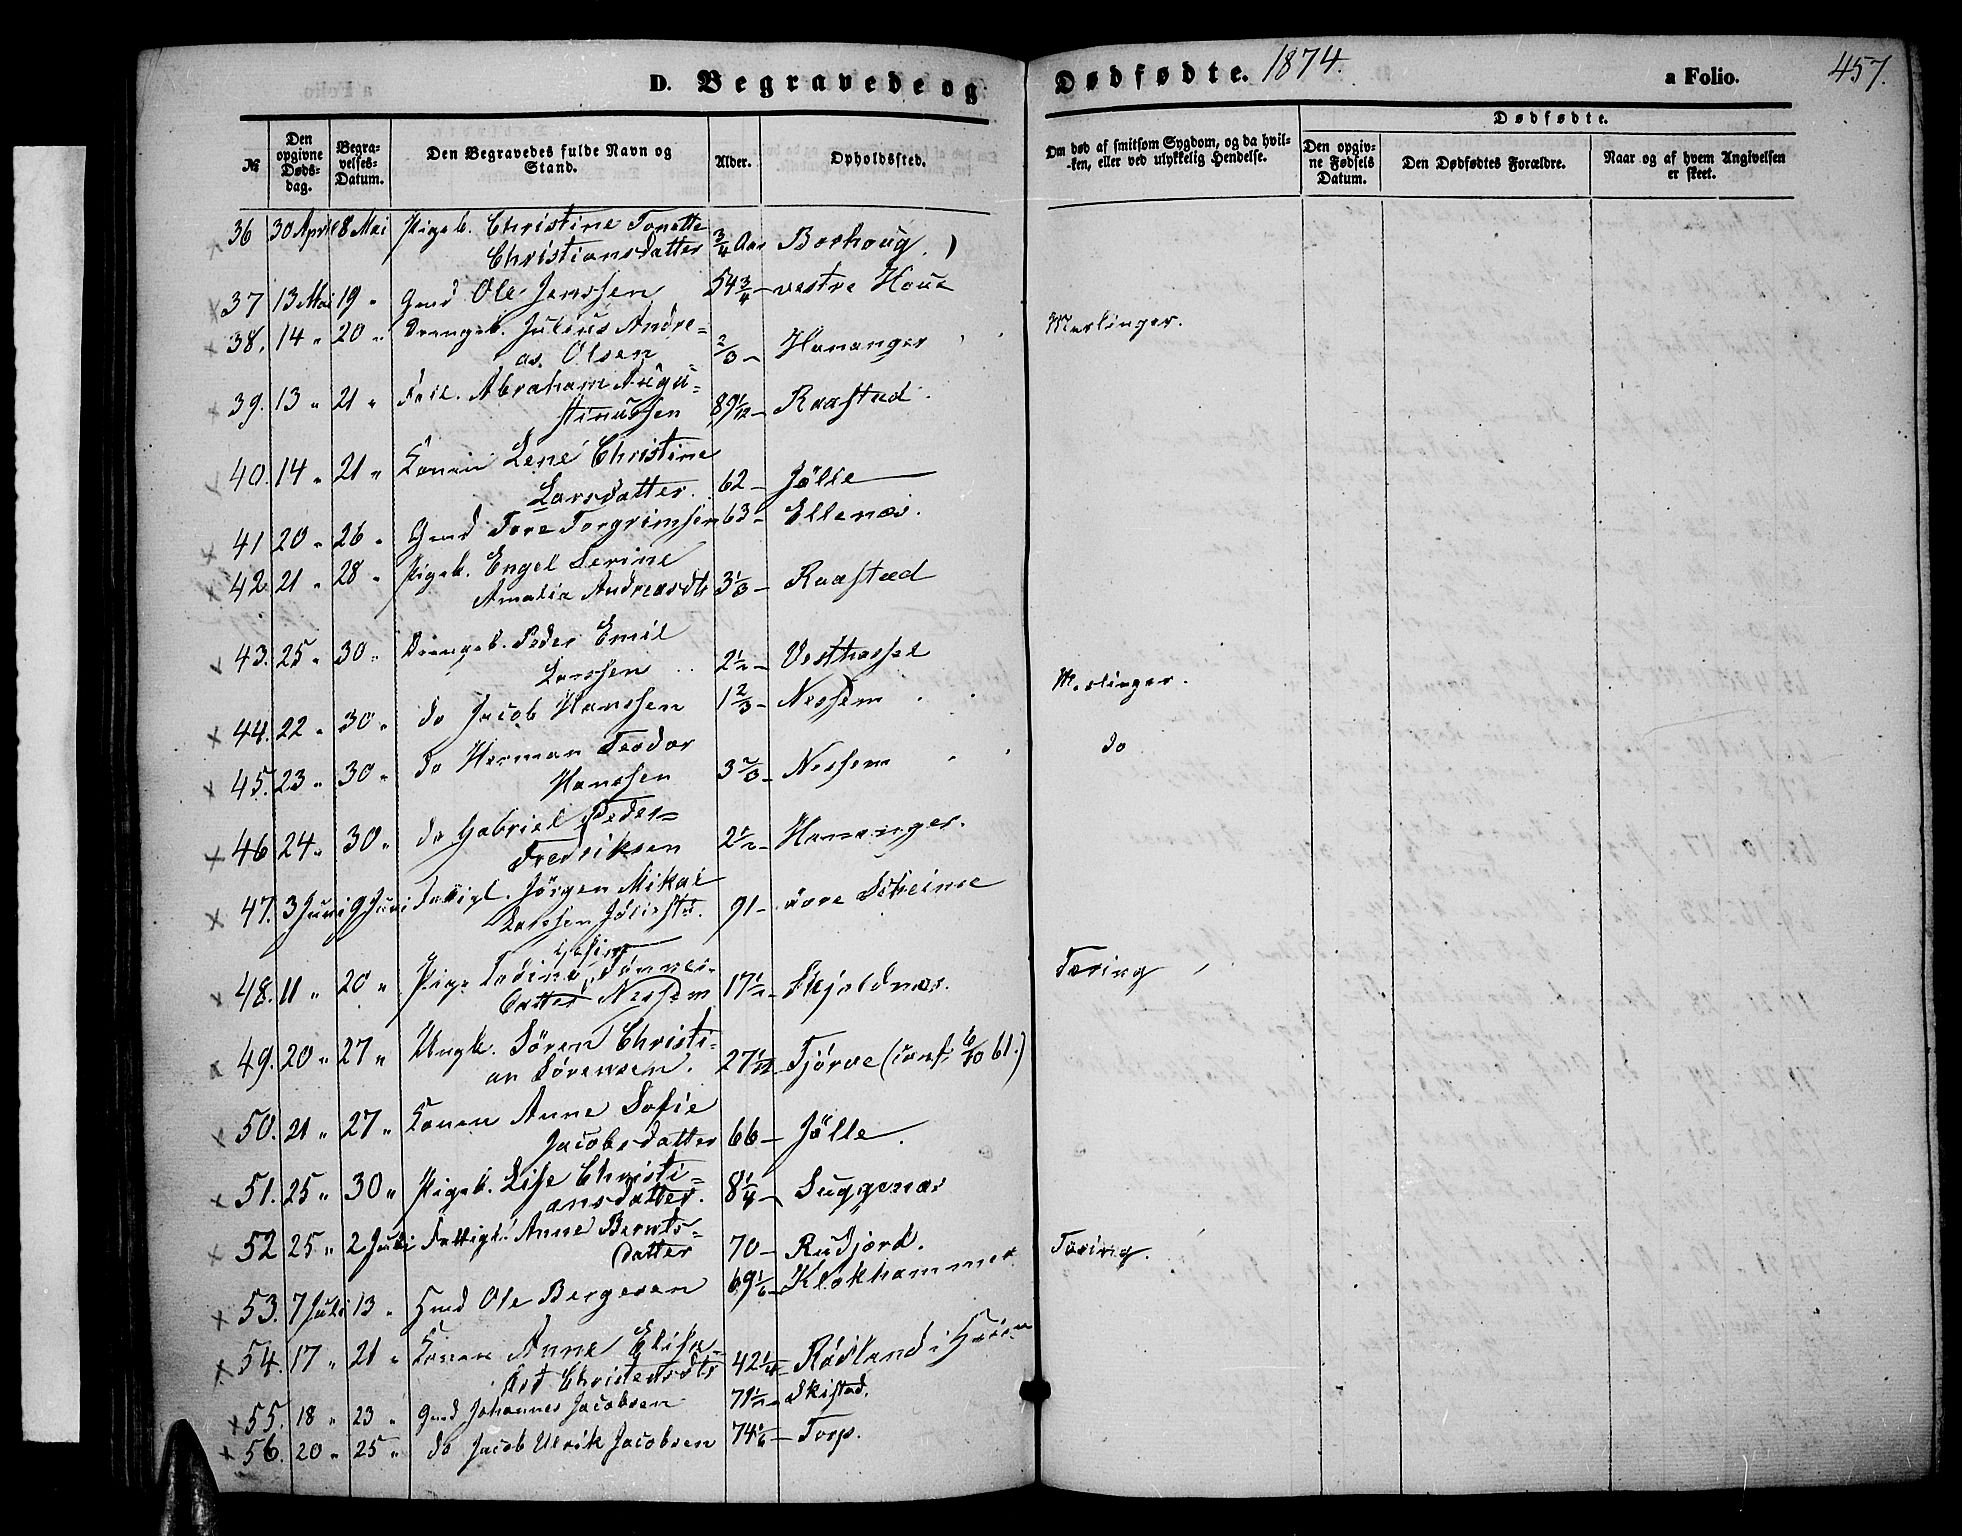 D. Begravede og Dødfødte. 1874. a Folio. 457.
№ Den opgivne Døds-dag. Begra-velses-Datum. Den Begravedes fulde Navn og Stand. Alder. Opholdssted. Om død af smitsom Sygdom, og da hvil-ken, eller ved ulykkelig Hendelse. Dødfødte. Den opgiv-ne Fødsels Datum. Den Dødfødtes Forældre. Naar og af hvem Angivelsen er skeet.
36 30 April 8 Mai Pigeb. Christine Tonette
Christiansdatter 3/4 Aar Borhoug.
37 13 Mai 19 " Gmd Ole Jenssen 54 3/4 — vestre Haue
38. 14 " 20 " Drengeb. Julius Andre=
as Olsen 2/3 — Hananger Meslinger.
39. 13 " 21 " Abraham Augu=
stinussen 89 1/12 — Raastad.
40. 14 " 21 " Konen Lene Christine
Larsdatter. 62 — Jölle
41 20 " 26 " Gmd Tore Torgrimsen 63 — Ellenæs.
42. 21 " 28 " Pigeb. Engel Serine
Amalie Andreasdtr 3 1/3 — Raastad
43. 25 " 30 " Drengeb. Peder Emil
Larssen 2 1/2 — Vesthassel
44. 22 " 30 " do Jacob Hanssen 1 2/3 — Nessem Meslinger.
45. 23 " 30 " do Herman Teodor
Hanssen 3 2/3 — Nessem do
46 24 " 30 " do Gabriel Peder=
Fredriksen 2 1/2 — Hananger.
47. 3 Juni 9 Juni Fattigl. Jörgen Mikal
Larssen 91 — övre Skeime
48. 11 " 20 " Pige Tönnes-
datter Nessem 17 1/2 — Skjoldnæs. Tæring
49. 20 " 27 " Ungk. Sören Christi-
an Sörensen. 27 1/12 — Tjörve (conf. 6/10 61.)
50. 21 " 27 " Konen Anne Sofie
Jacobsdatter 66 — Jölle.
51. 25 " 30 " Pigeb. Lise Christi=
ansdatter. 8 1/4 — Luggenæs
52 25 " 2 Juli Fattigl. Anne Bernts=
datter 70 — Rudjord. Tæring.
53. 7 Juli 13 " Ole Bergesen 69 1/6 — Klokhammer
54. 17 " 21 " Konen Anne Elisa-
bet Christensdtr 42 1/4 — Rödland i
55. 18 " 23 " Gmd Johannes Jacobsen 71 1/2 — Skistad.
56. 20 " 25 " do Jacob Ulrik Jacobsen 74 1/6 — Torp.